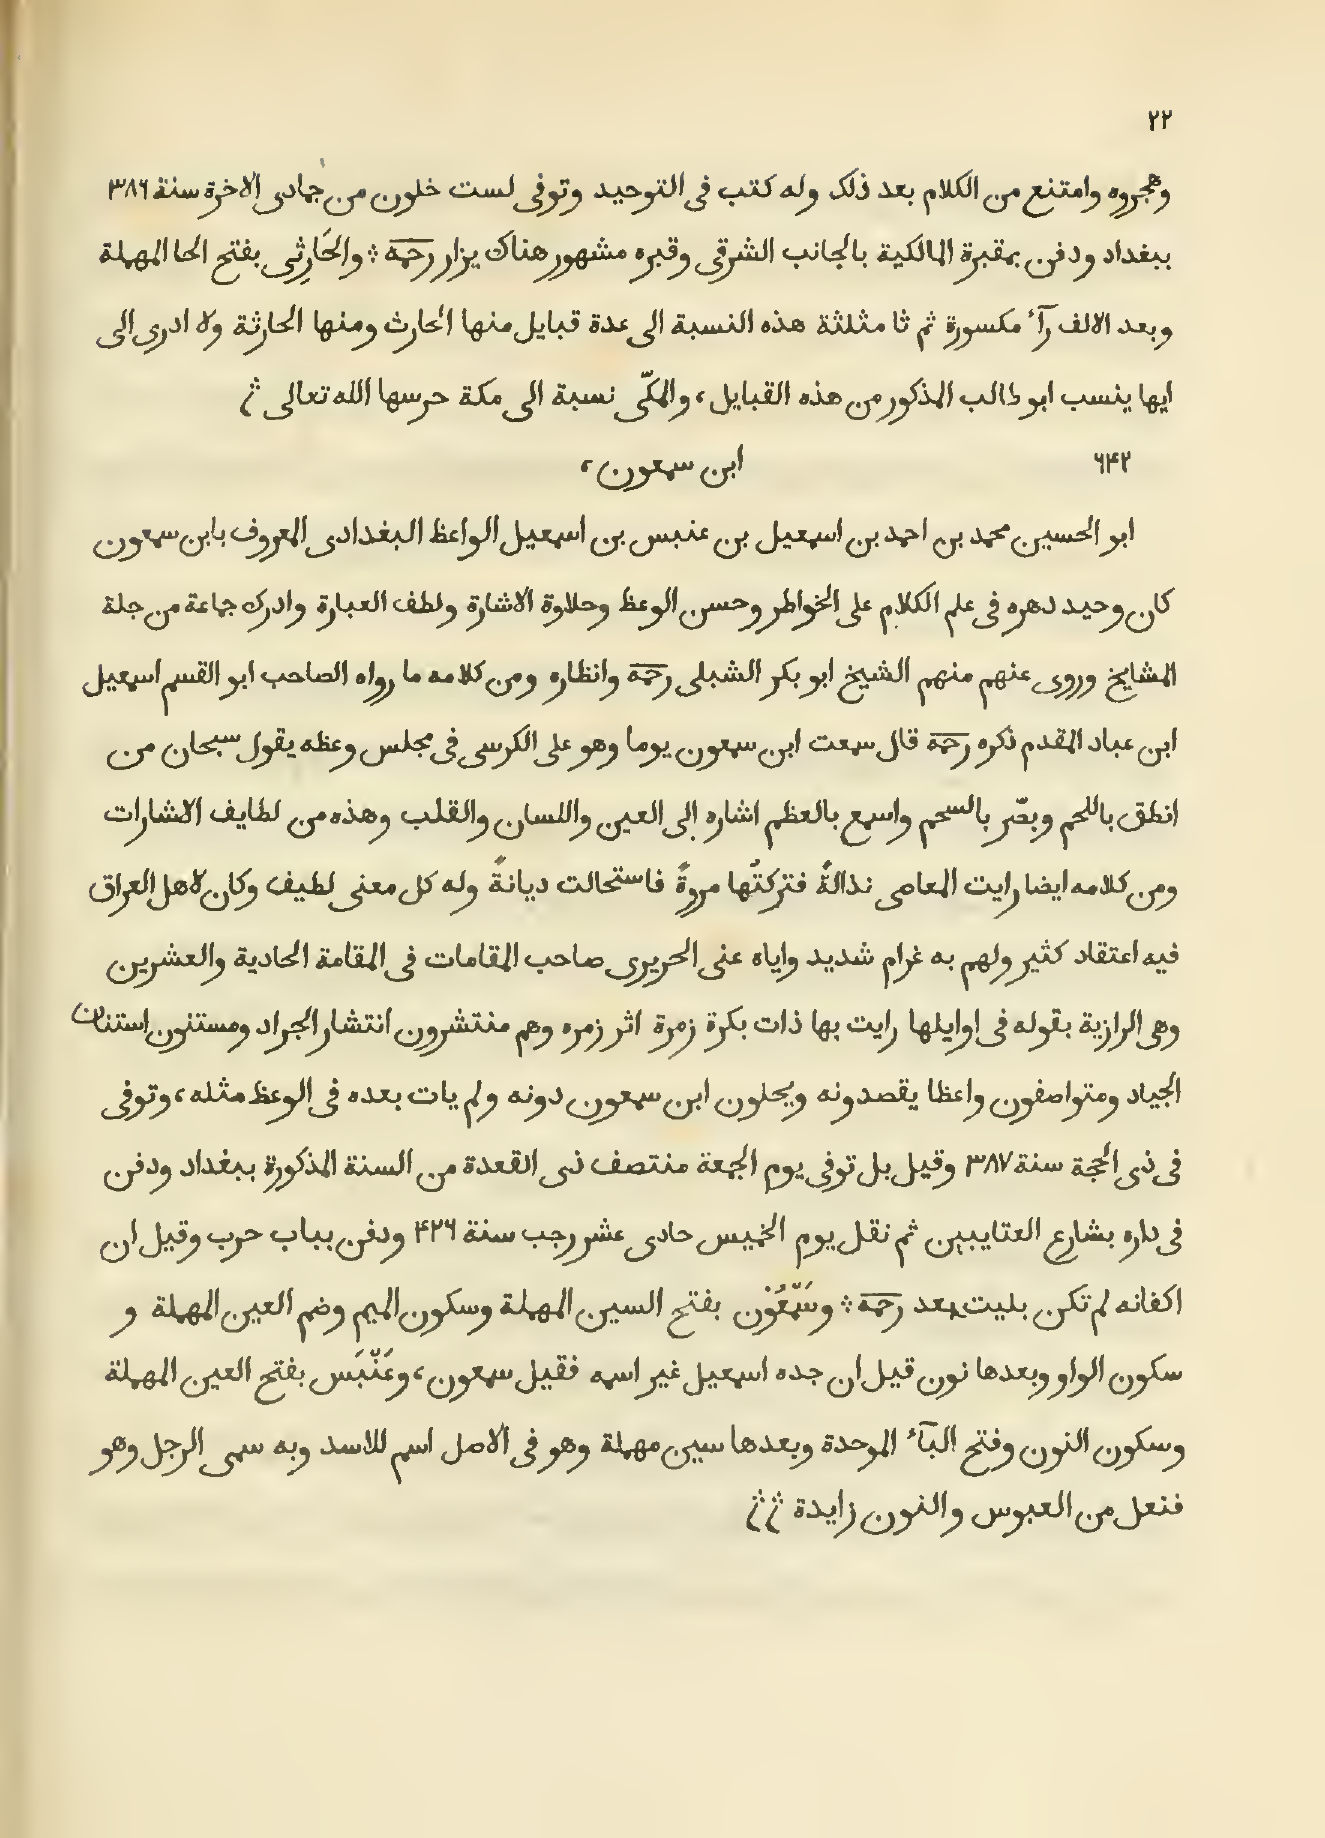 ٢٢
وهجروه وامتنع من الكلام بعد ذلك وله كتب فى التوحيد وتوفى لست خلون من جمادى الاخرة سنة ٣٨٦
ببغداد ودفن بمقبرة المالكية بالجانب الشرقى وقبره مشهور هناك يزار رحمه ⁘ والحَارِثى بفتح الحا المهملة
وبعد الالف رآء مكسورة ثم ثا مثلثة هذه النسبة الى عدة قبايل منها الحارث ومنها الحارثة ولا ادرى الى
ايها ينسب ابو طالب المذكور من هذه القبايل، والمكّى نسبة الى مكة حرسها الله تعالى
٦٤٢ ابن سمعون،
ابو الحسين محمد بن احمد بن اسمعيل بن عنبس بن اسمعيل الواعظ البغدادى المعروف بابن سمعون
كان وحيد دهره فى علم الكلام على الخواطر وحسن الوعظ وحلاوة الاشارة ولطف العبارة وادرك جماعة من جلة
المشايخ وروى عنهم منهم الشيخ ابو بكر الشبلى رحمه وانظاره ومن كلامه ما رواه الصاحب ابو القسم اسمعيل
ابن عباد المقدم ذكره رحمه قال سمعت ابن سمعون يوما وهو على الكرسى فى مجلس وعظه يقول سبحان من
انطق باللحم وبصّر بالسحم واسمع بالعظم اشاره الى العين واللسان والقلب وهذه من لطايف الاشارات
ومن كلامه ايضا رايت المعاصى نذالةً فتركتُها مروةً فاستحالت ديانةً وله كل معنى لطيف وكان لاهل العراق
فيه اعتقاد كثير ولهم به غرام شديد واياه عنى الحريرى صاحب المقامات فى المقامة الحادية والعشرين
وهى الرازية بقوله فى اوايلها رايت بها ذات بكرة زمرة اثر زمره وهم منتشرون انتشار الجراد ومستنون استنان
الجياد ومتواصفون واعظا يقصدونه ويحلون ابن سمعون دونه ولم يات بعده فى الوعظ مثله، وتوفى
فى ذى الحجة سنة ٣٨٧ وقيل بل توفى يوم الجمعة منتصف ذى القعدة من السنة المذكورة ببغداد ودفن
فى داره بشارع العتايبين ثم نقل يوم الخميس حادى عشر رجب سنة ٤٢٦ ودفن بباب حرب وقيل ان
اكفانه لم تكن بليت بعد رحمه ⁘ وسَمْعُوْن بفتح السين المهملة وسكون الميم وضم العين المهملة و
سكون الواو وبعدها نون قيل ان جده اسمعيل غير اسمه فقيل سمعون، وعَنْبَس بفتح العين المهملة
وسكون النون وفتح البآء الموحدة وبعدها سين مهملة وهو فى الاصل اسم للاسد وبه سمى الرجل وهو
فنعل من العبوس والنون زايدة